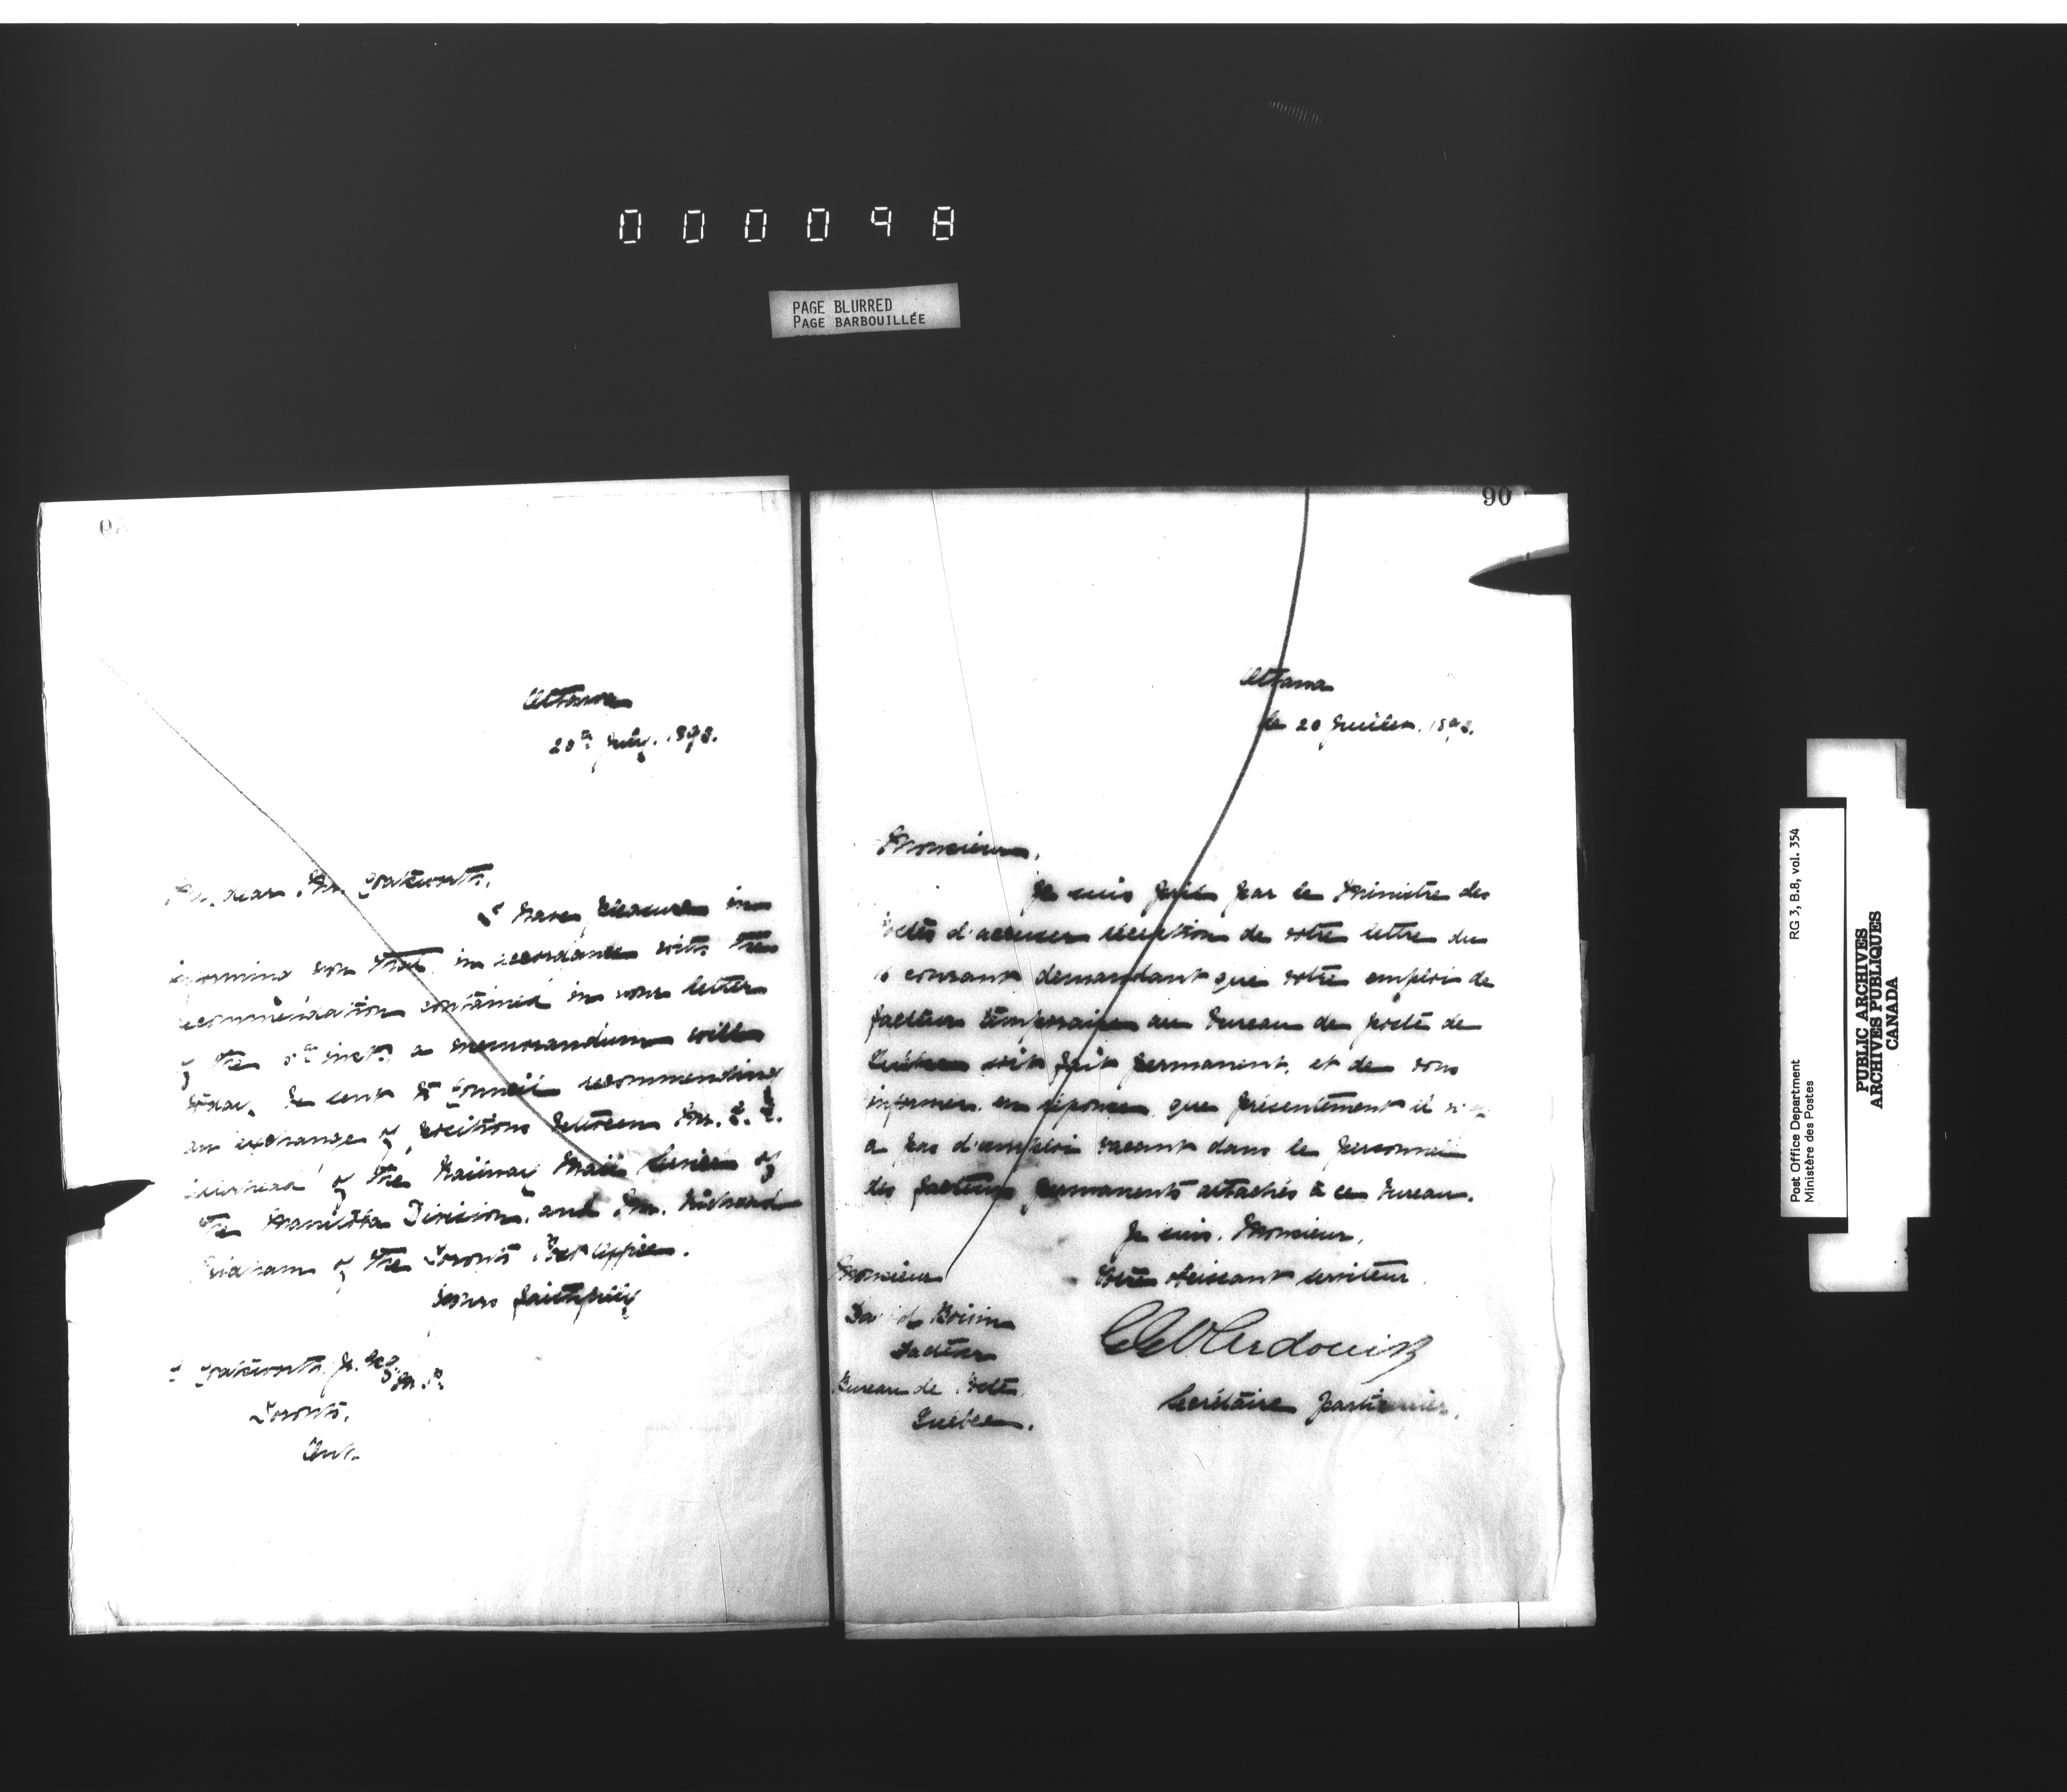 000098
PAGE BLURRED
PAGE BARBOUILLÉE
Ottawa
20th July. 1893.
My dear Mr. Coatsworth,
I have pleasure in
informing you that in accordance with the
recommendation contained in your letter
of the inst. a memorandum will
today, be sent to Council recommending
an exchange of positions between Mr.
of the Railway Mail Service of
the Manitoba Division, and Mr. Richard
of the Toronto Post Office.
Yours faithfully
E Coatsworth, Jr. Esq. M.P.
Toronto,
Ont.
90
Ottawa
le 20 Juillet, 1893.
Monsieur,
Je suis prié par le Ministre des
Postes d'accuser réception de votre lettre du
courant demandant que votre emploi de
facteur temporaire au bureau de poste de
Québec soit fait permanent, et de vous
informer, en réponse, que présentement il n'y
a pas d'emploi vacant dans le personnel
des facteurs permanents attachés à ce bureau.
Je suis, Monsieur,
Votre obéissant serviteur
Monsieur
David Boivin
Facteur
Bureau de Poste
Québec.
Secrétaire particulier.
Post Office Department
Ministère des Postes
RG 3, B.8, vol. 354
PUBLIC ARCHIVES
ARCHIVES PUBLIQUES
CANADA